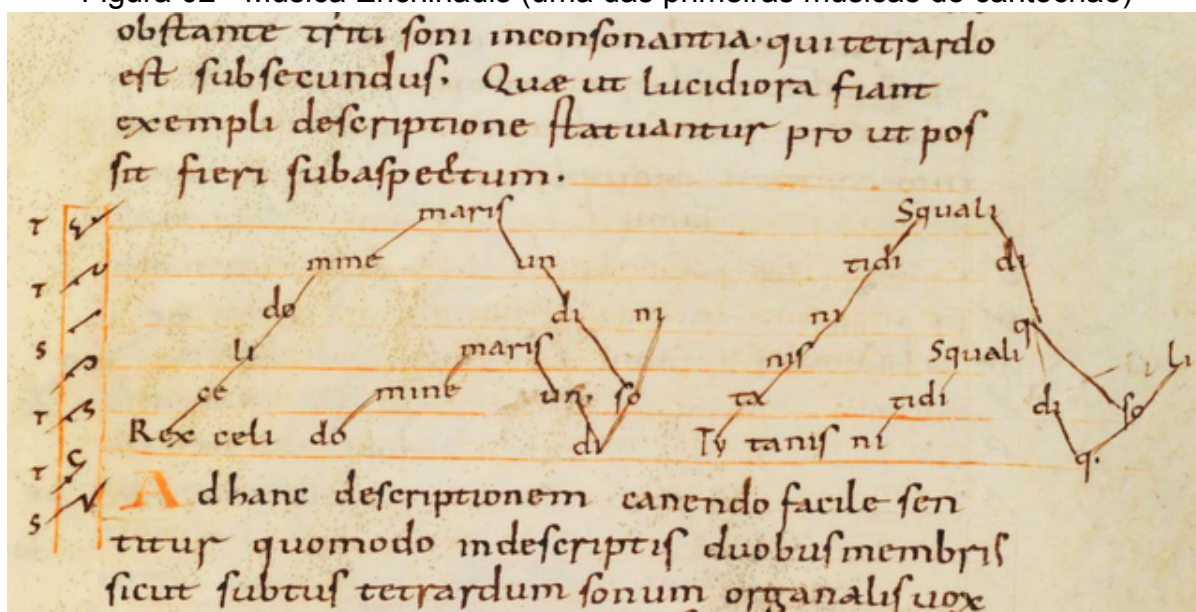 Figura 02 - Musica Enchiriadis (uma das primeiras músicas do cantochão)
obstante triti soni inconsonantia. qui tetrardo
est subsecundus. Quæ ut lucidiora fiant
exempli descriptione statuantur pro ut pos
sit fieri subaspectum.
maris Squali
T mine un tidi di
T do di ni ni q
S li maris so nis Squali li
ce mine un, ta tidi di so
T Rex celi do di Ty tanis ni q.
T
S
Ad hanc descriptionem canendo facile sen
titur quomodo in descriptis duobus membris
sicut subtus tetrardum sonum organalis uox